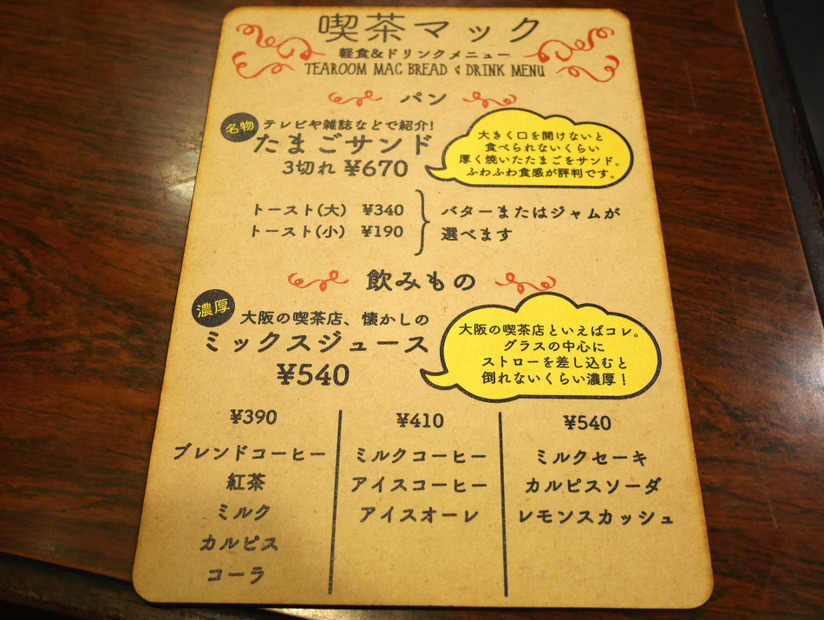 喫茶マック
軽食&ドリンクメニュー
TEAROOM MAC BREAD & DRINK MENU
パン
名物
テレビや雑誌などで紹介!
たまごサンド
3切れ ¥670
大きく口を開けないと
食べられないくらい
厚く焼いたたまごをサンド。
ふわふわ食感が評判です。
トースト(大) ¥340
トースト(小) ¥190
バターまたはジャムが
選べます
飲みもの
濃厚
大阪の喫茶店、懐かしの
ミックスジュース
¥540
大阪の喫茶店といえばコレ。
グラスの中心に
ストローを差し込むと
倒れないくらい濃厚!
¥390
ブレンドコーヒー
紅茶
ミルク
カルピス
コーラ
¥410
ミルクコーヒー
アイスコーヒー
アイスオーレ
¥540
ミルクセーキ
カルピスソーダ
レモンスカッシュ